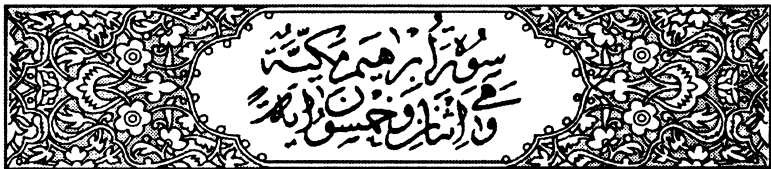 سُورَةُ إِبْرَاهِيمَ مَكِّيَّةٌ
وَهِيَ اثْنَانِ وَخَمْسُونَ آيَةً